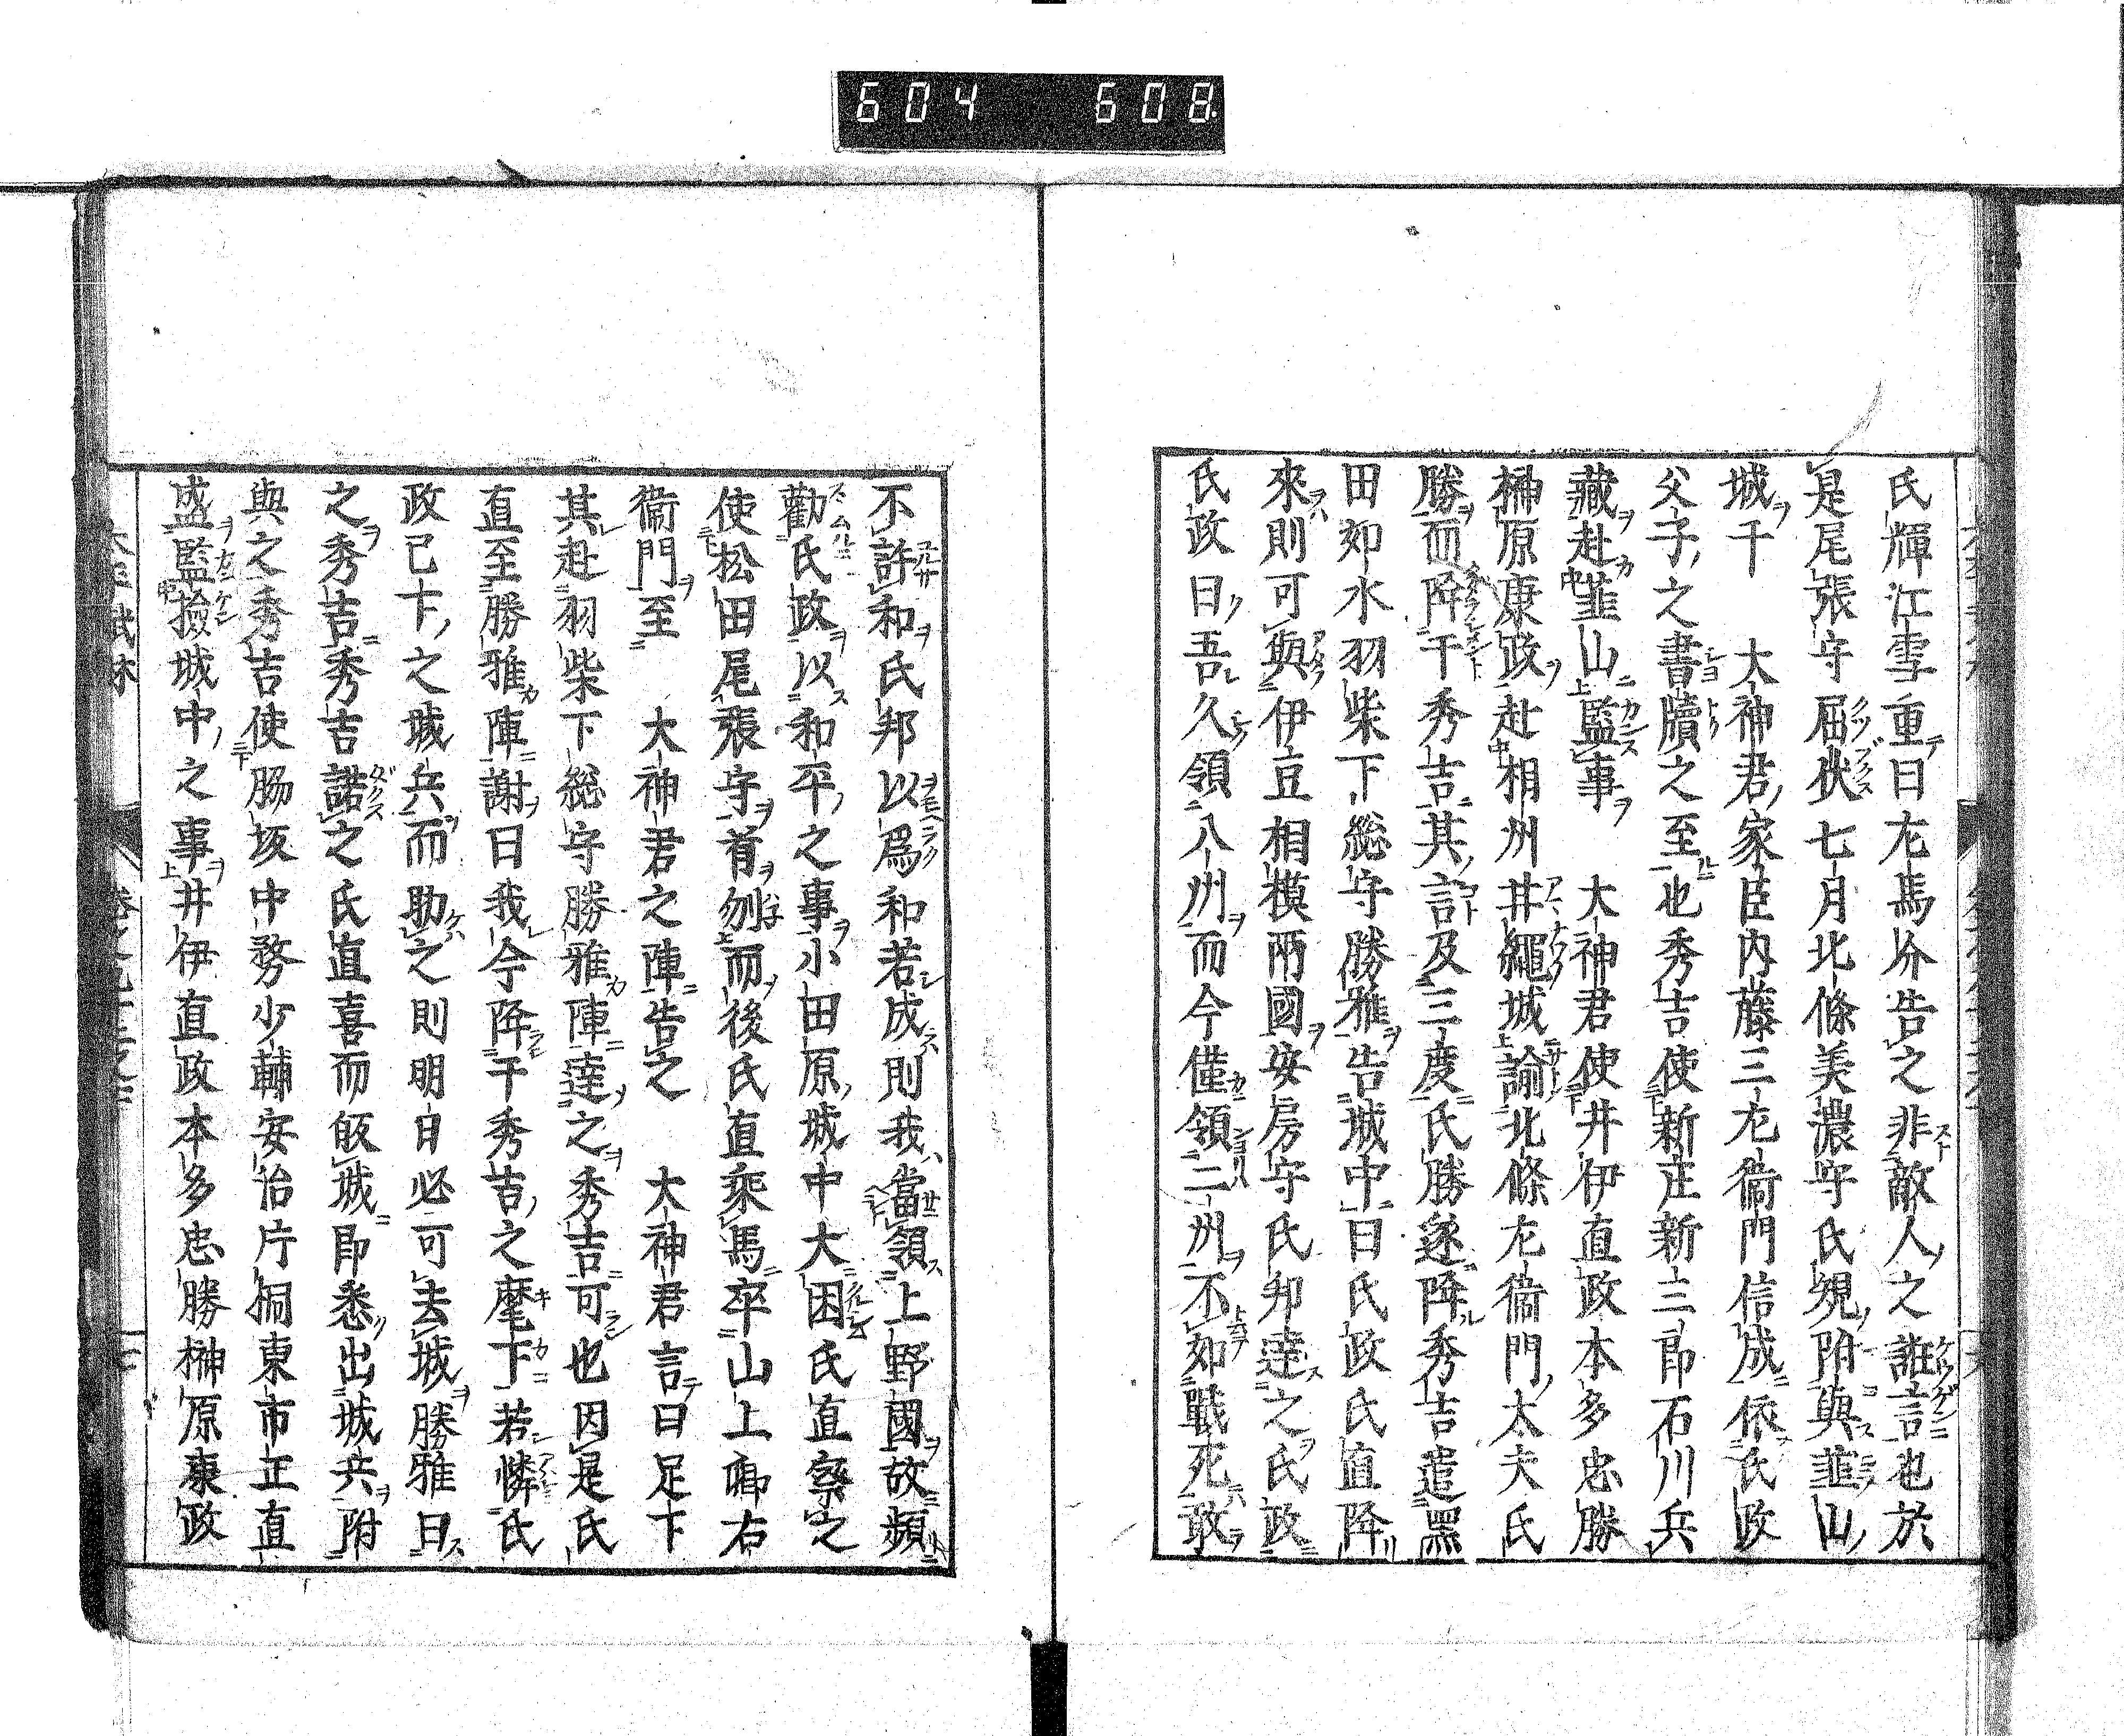 604 608
氏輝江雪重曰左馬介告之非敵人之誑言也於
是尾張守屈伏七月北條美濃守氏規附與韮山
城于 大神君家臣内藤三左衞門信成依氏政
父子之書牘之至也秀吉使新庄新三郎石川兵
藏赴韮山監事 大神君使井伊直政本多忠勝
榊原康政赴相州井繩城諭北條左衞門太夫氏
勝而降于秀吉其言及三度氏勝遂降秀吉遣黑
田如水羽柴下総守勝雅告城中曰氏政氏直降
來則可與伊豆相模兩國安房守氏邦達之氏政
氏政曰吾久領八州而今僅領二州不如戰死敢
不許和氏邦以爲和若成則我當領上野國故頻
勸氏政以和平之事小田原城中大困氏直察之
使松田尾張守首刎而後氏直乘馬卒山上郷右
衞門至 大神君之陣告之 大神君言曰足下
其赴羽柴下総守勝雅陣達之秀吉可也因是氏
直至勝雅陣謝曰我今降于秀吉之麾下若憐氏
政已下之城兵而助之則明日必可去城勝雅曰
之秀吉秀吉諾之氏直喜而皈城即悉出城兵附
與之秀吉使脇坂中務少輔安治片桐東市正直
盛監撿城中之事井伊直政本多忠勝榊原康政